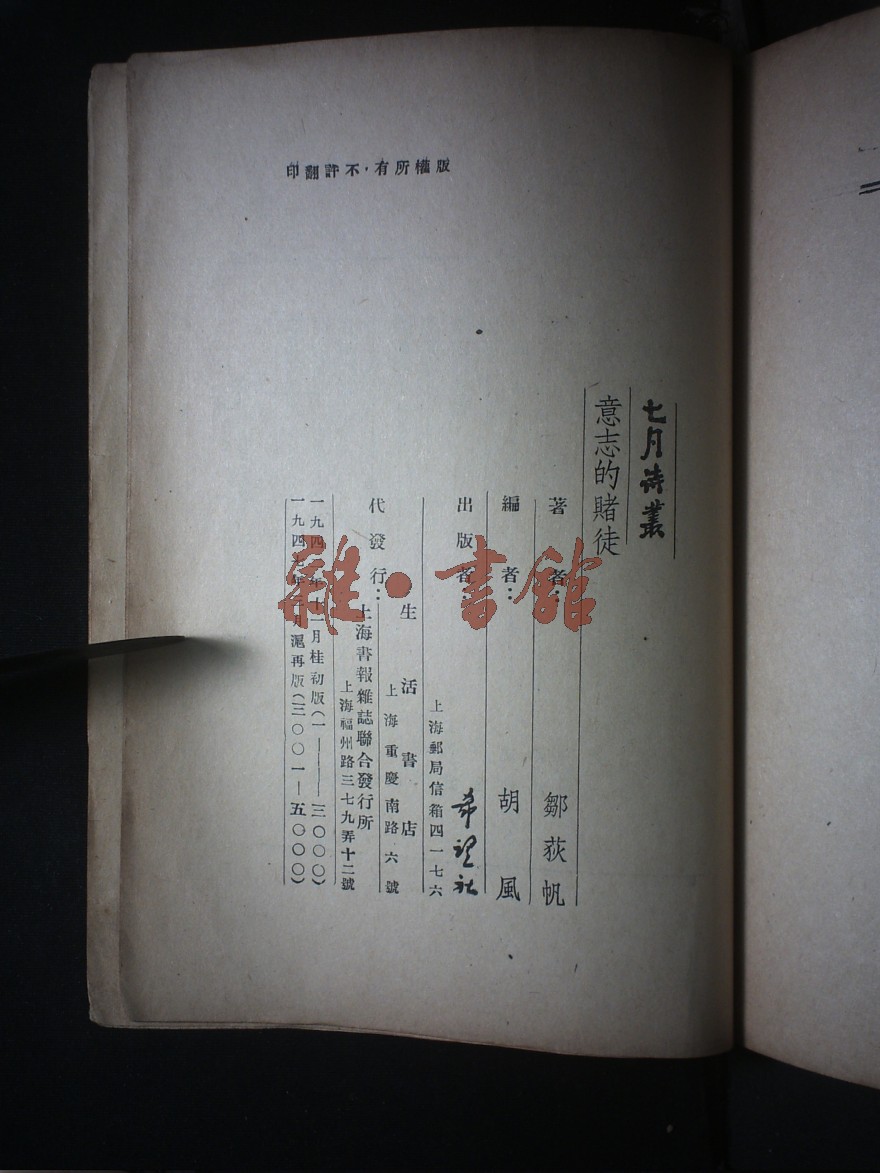 版權所有，不許翻印
七月詩叢
意志的賭徒
著者：鄒荻帆
編者：胡風
出版者：希望社
上海郵局信箱四一七六
代發行：生活書店
上海重慶南路六號
上海書報雜誌聯合發行所
上海福州路三七九弄十二號
十一月桂初版（一——三〇〇〇）
月滬再版（三〇〇一—五〇〇〇）
雜·書館